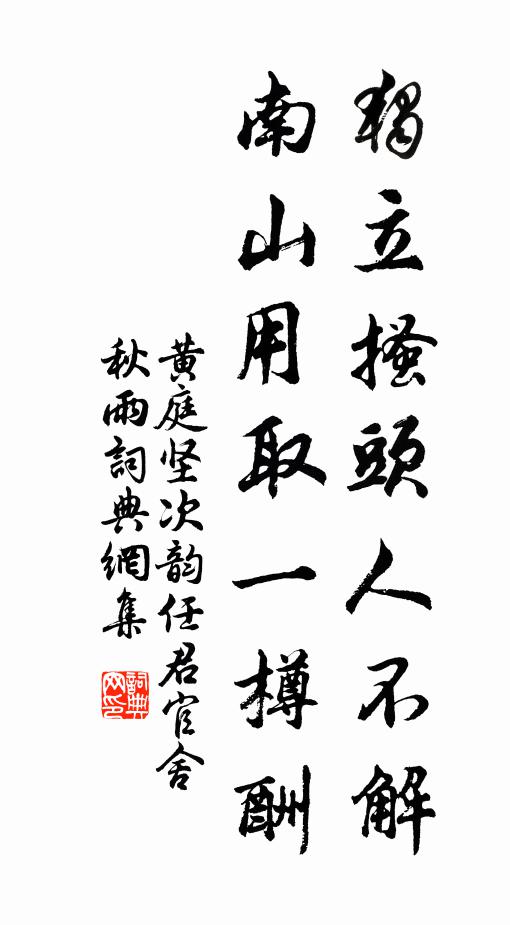 獨立搔頭人不解
南山用取一樽酬
黄庭坚次韵任君官舍
秋雨詞典網集
詞典
网印